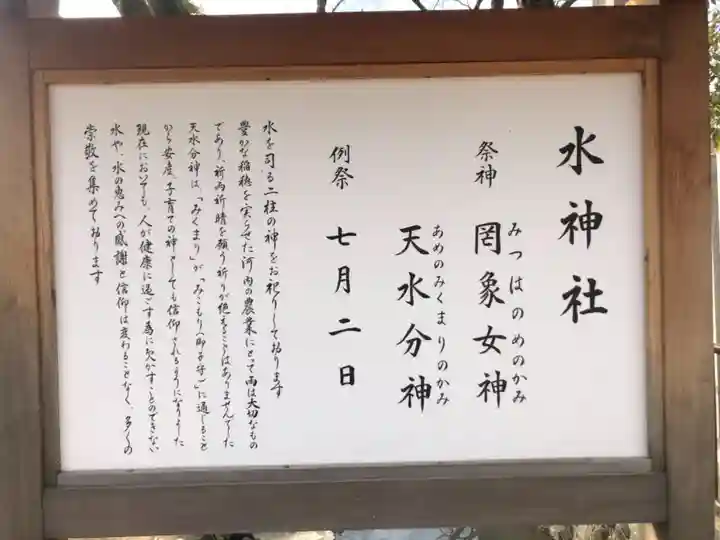 水神社
祭神 罔象女神
みつはのめのかみ
天水分神
あめのみくまりのかみ
例祭 七月二日
水を司る二柱の神をお祀りして おります
豊かな稲穂を実らせた河内の農業にとって雨は大切なもの
であり、祈雨祈晴を願う祈りが絶えることはありませんでした
天水分神は、「みくまり」が「みこもり(御子守)」に通じること
から安産、子育ての神としても信仰されるようになりました
現在においても、人が健康に過ごす為に欠かすことのできない
水や、水の恵みへの感謝と信仰は変わることなく、多くの
崇敬を集めております